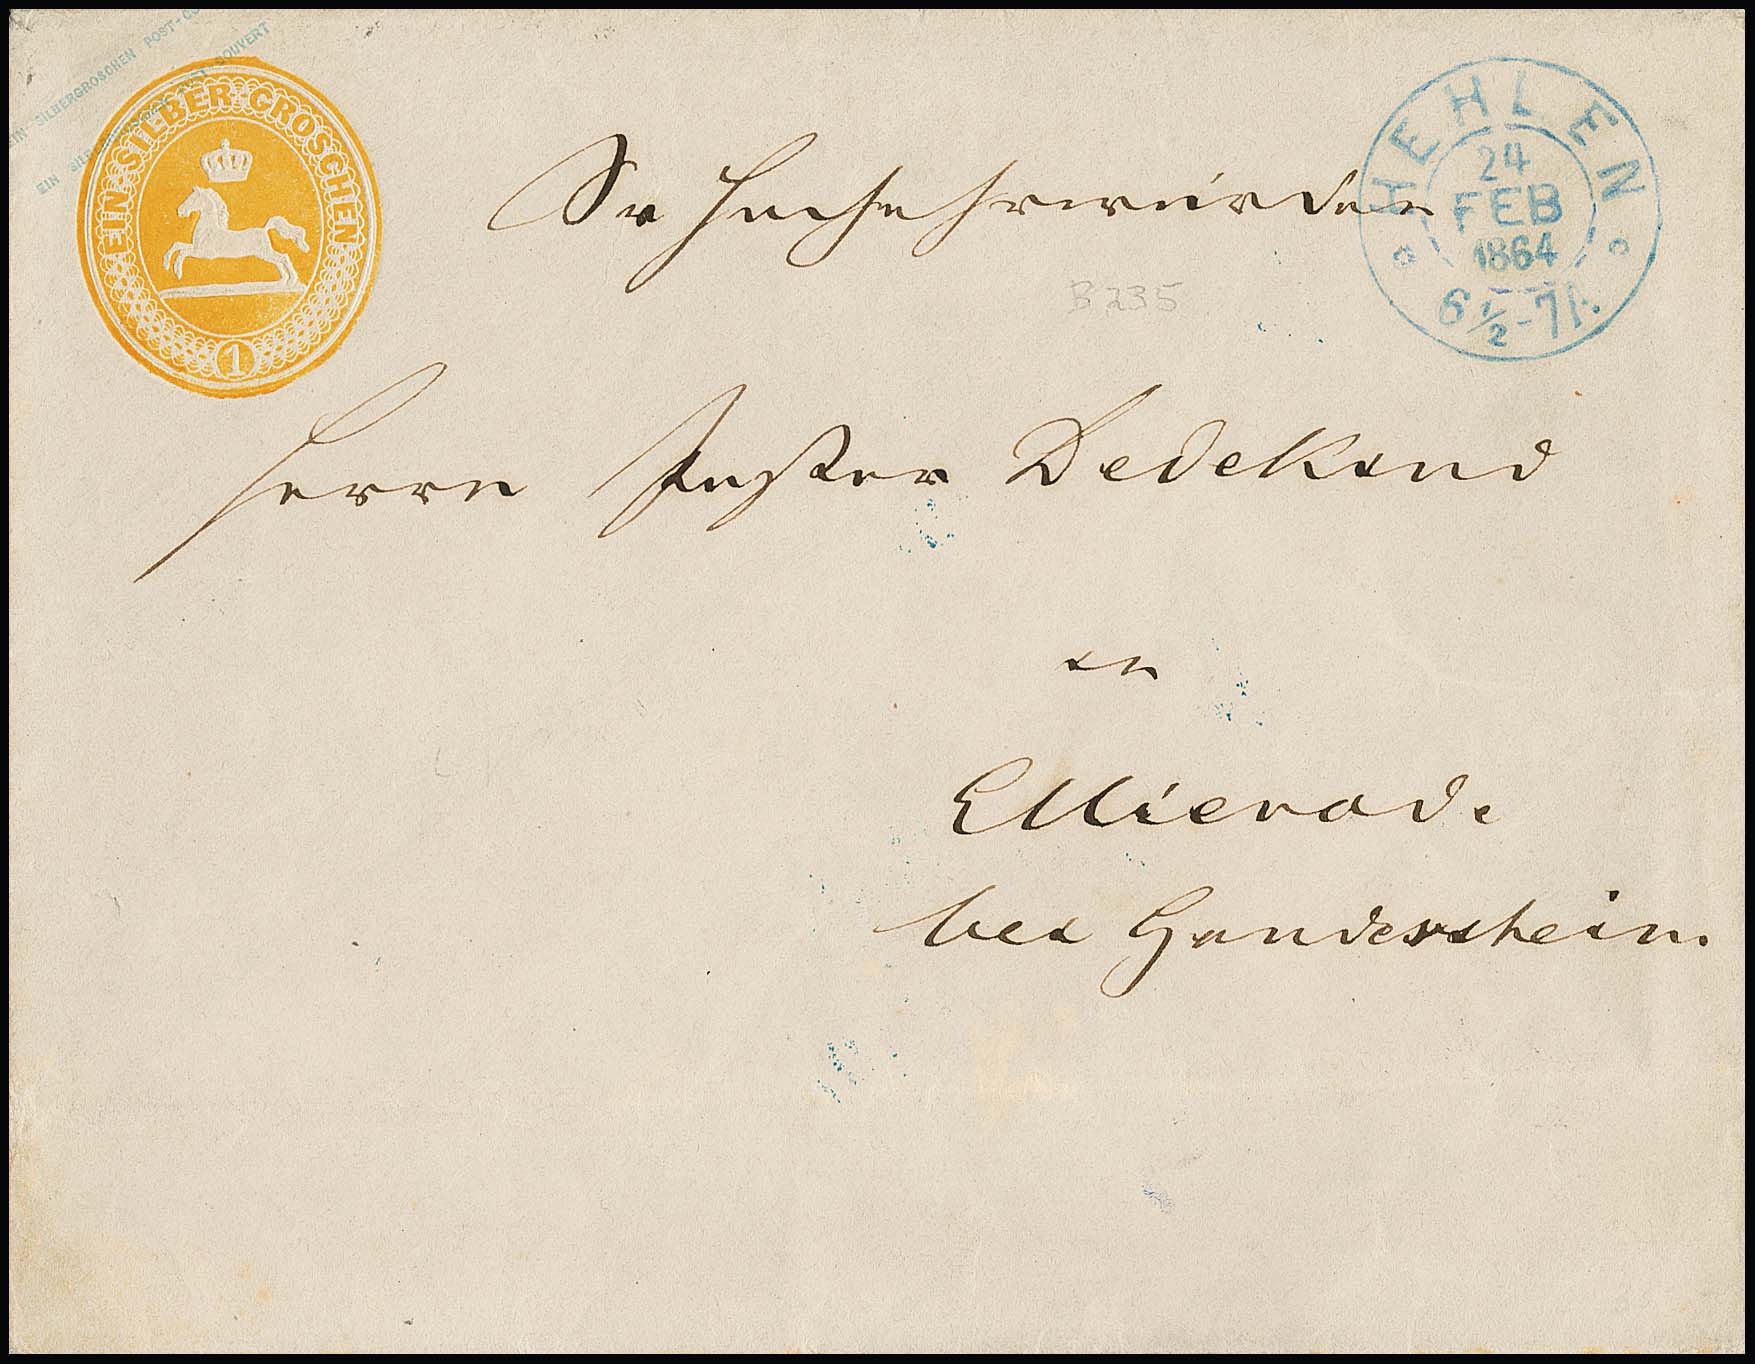 EIN SILBERGROSCHEN POST-CO
EIN SILBERGROSCHEN POST-COUVERT
EIN SILBER-GROSCHEN
1
HEHLEN
24
FEB
1864
6½-7A.
Sr Hochehrwürden
B 235
Herrn Pastor Dedekind
in
Ellierode
bei Gandersheim.